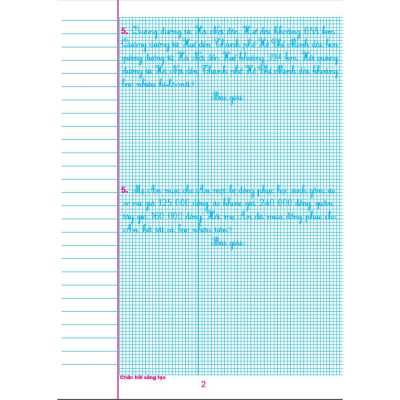 5. Quãng đường từ Hà Nội đến Huế dài khoảng 658 km.
Quãng đường từ Huế đến Thành phố Hồ Chí Minh dài hơn
quãng đường từ Hà Nội đến Huế khoảng 394 km. Hỏi quãng
đường từ Hà Nội đến Thành phố Hồ Chí Minh dài khoảng
bao nhiêu ki-lô-mét?
Bài giải:
5. Mẹ An mua cho An một bộ đồng phục học sinh gồm: áo
sơ mi giá 125 000 đồng, áo khoác giá 240 000 đồng, quần
tây giá 160 000 đồng. Hỏi mẹ An đã mua đồng phục cho
An hết tất cả bao nhiêu tiền?
Bài giải:
Chân trời sáng tạo
2